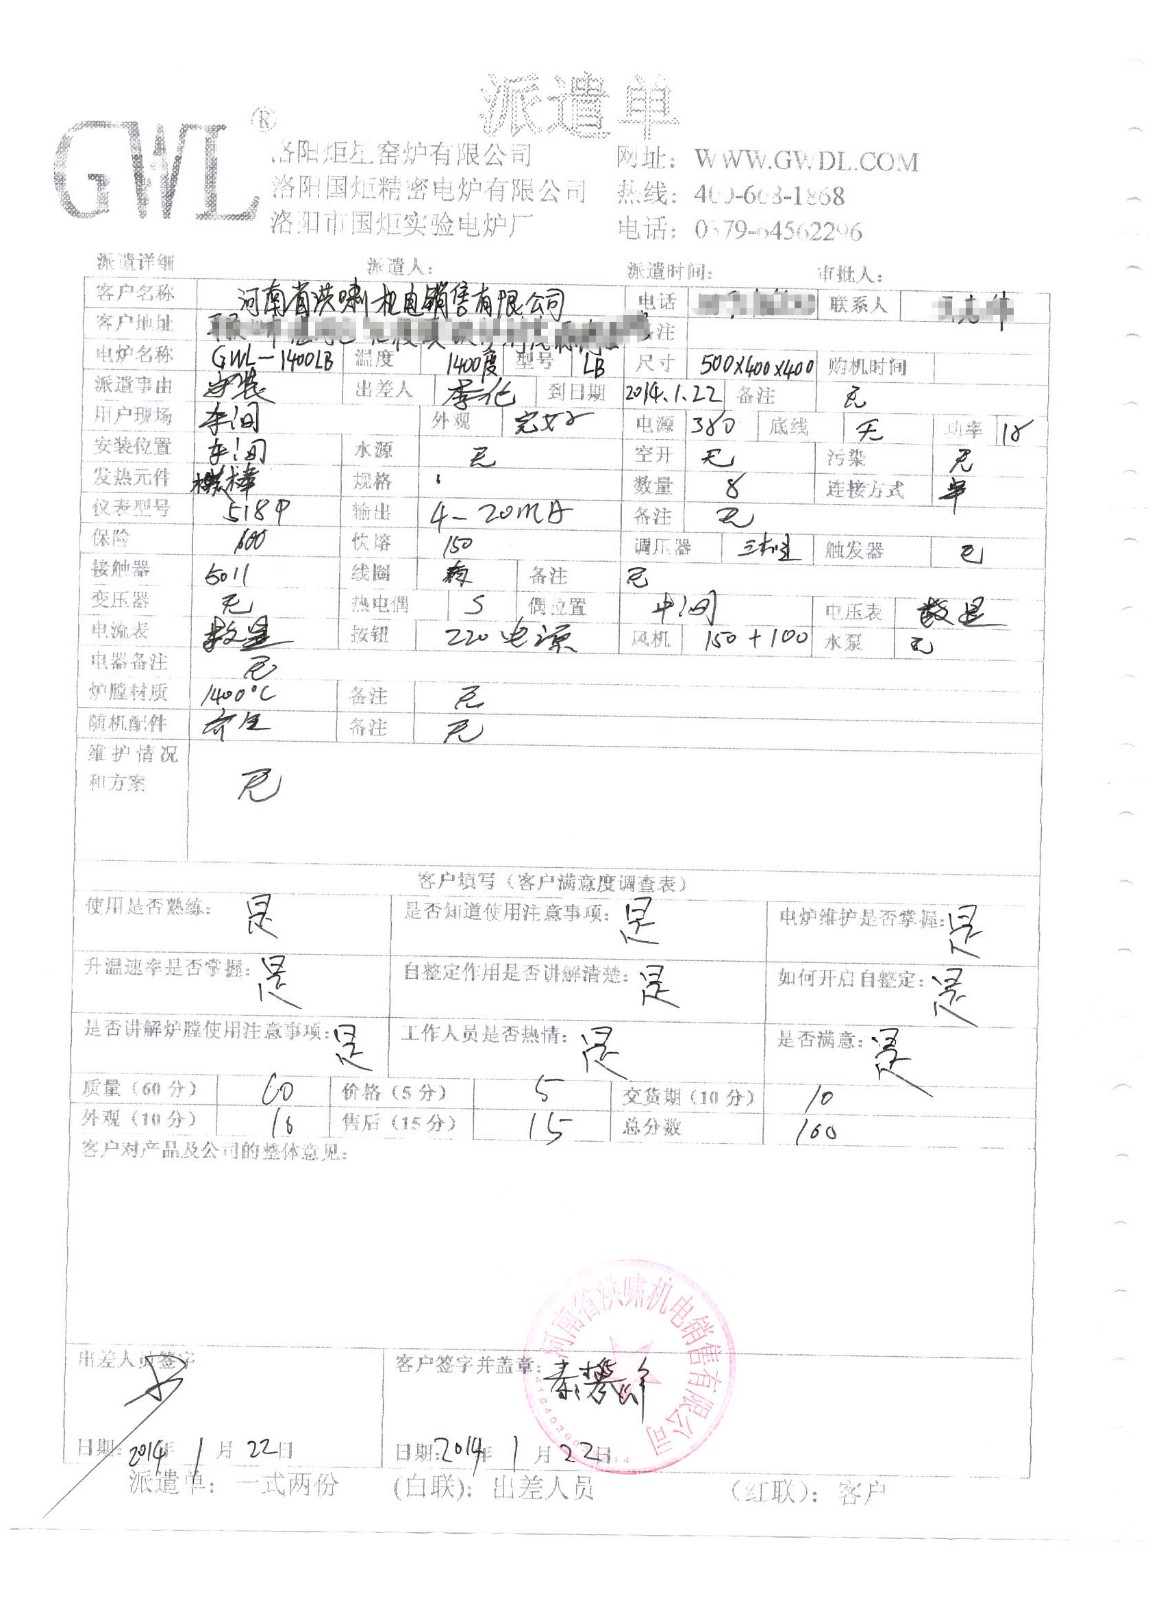 派遣单
GWL®
洛阳炬星窑炉有限公司 网址: WWW.GWDL.COM
洛阳国炬精密电炉有限公司 热线: 400-668-1868
洛阳市国炬实验电炉厂 电话: 0379-64562296
派遣详细 派遣人: 派遣时间: 审批人:
客户名称 河南省洪啸机电销售有限公司 电话 联系人
客户地址 备注
电炉名称 GWL-1400LB 温度 1400度 型号 LB 尺寸 500X400X400 购机时间
派遣事由 安装 出差人 到日期 2014.1.22 备注 无
用户现场 车间 外观 完好 电源 380 底线 无 功率 18
安装位置 车间 水源 无 空开 无 污染 无
发热元件 棒 规格 数量 8 连接方式 串
仪表型号 518P 输出 4-20mA 备注 无
保险 600 快熔 150 调压器 触发器 无
接触器 5011 线圈 备注 无
变压器 无 热电偶 S 偶位置 中间 电压表 数显
电流表 数显 按钮 220电源 风机 150+100 水泵 无
电器备注 无
炉膛材质 1400℃ 备注 无
随机配件 齐全 备注 无
维护情况
和方案 无
客户填写(客户满意度调查表)
使用是否熟练: 是 是否知道使用注意事项: 是 电炉维护是否掌握: 是
升温速率是否掌握: 是 自整定作用是否讲解清楚: 是 如何开启自整定: 是
是否讲解炉膛使用注意事项: 是 工作人员是否热情: 是 是否满意: 是
质量(60分) 60 价格(5分) 5 交货期(10分) 10
外观(10分) 10 售后(15分) 15 总分数 100
客户对产品及公司的整体意见:
河南省洪啸机电销售有限公司
出差人员签字 客户签字并盖章:
日期: 2014年1月22日 日期: 2014年1月22日
派遣单: 一式两份 (白联): 出差人员 (红联): 客户